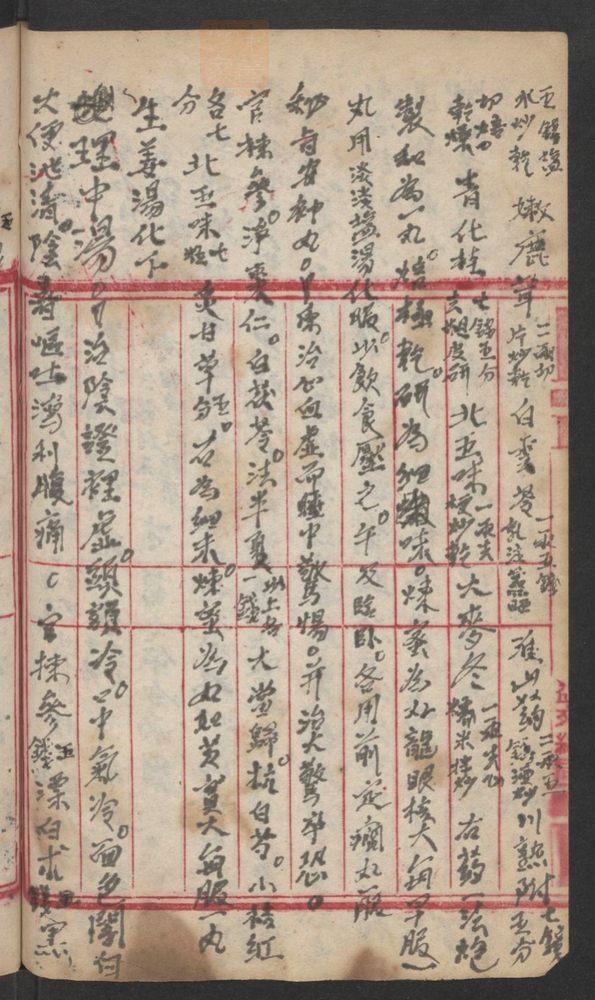 五錢鹽水炒乾 嫩鹿茸二兩切片炒乾 白雲苓一兩五錢乳浸蒸晒 淮山藥二兩五錢酒炒 川熟附七錢五分
切焙乾燥 青化桂七錢五分去粗皮研 北五味一兩去梗炒乾 大麥冬一兩去心糯米拌炒 右藥一法炮
製和為一丸焙極乾研為細末煉蜜為丸龍眼核大每早服一
丸用淡淡鹽湯化服以飲食壓之午及臨臥各用前丸服
秘旨安神丸 治心血虛而睡中驚惕并治大驚卒恐
官揀參 淨棗仁 白茯苓 法半夏以上各一錢 大當歸 杭白芍 小桔紅
各七分 北五味七粒 炙甘草錢 右為細末煉蜜為丸如芡實大每服一丸
生姜湯化下
理中湯 治陰證裡虛頭額冷口中氣冷面色
大便泄瀉陰毒嘔吐瀉利腹痛 官揀參五錢 漂白朮 黑